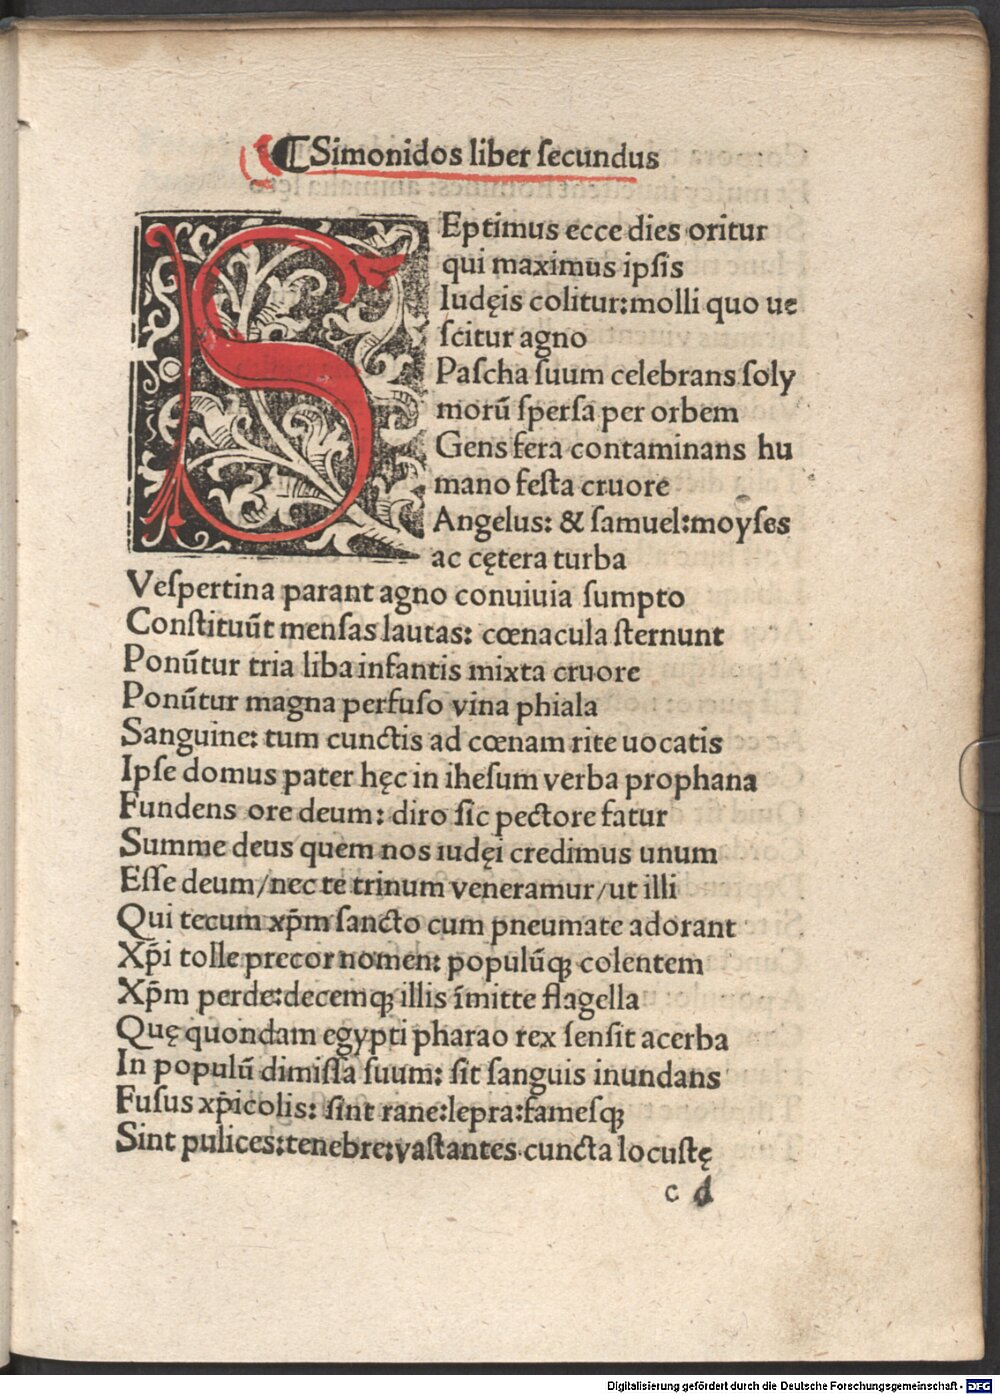 ¶ Simonidos liber ſecundus
SEptimus ecce dies oritur
qui maximus ipſis
Iudęis colitur:molli quo ue
ſcitur agno
Paſcha ſuum celebrans ſoly
morũ ſperſa per orbem
Gens fera contaminans hu
mano feſta cruore
Angelus: & ſamuel:moyſes
ac cętera turba
Veſpertina parant agno conuiuia ſumpto
Conſtituũt menſas lautas: cœnacula ſternunt
Ponũtur tria liba infantis mixta cruore
Ponũtur magna perfuſo vina phiala
Sanguine: tum cunctis ad cœnam rite uocatis
Ipſe domus pater hęc in iheſum verba prophana
Fundens ore deum: diro ſic pectore fatur
Summe deus quem nos iudęi credimus unum
Eſſe deum/nec te trinum veneramur/ut illi
Qui tecum xp̄m ſancto cum pneumate adorant
Xp̄i tolle precor nomen: populũqꝫ colentem
Xp̄m perde:decemqꝫ illis ĩmitte flagella
Quę quondam egypti pharao rex ſenſit acerba
In populũ dimiſſa ſuum: ſit ſanguis inundans
Fuſus xp̄icolis: ſint rane:lepra:fameſqꝫ
Sint pulices:tenebre:vaſtantes cuncta locuſtę
c d
Digitalisierung gefördert durch die Deutsche Forschungsgemeinschaft - DFG